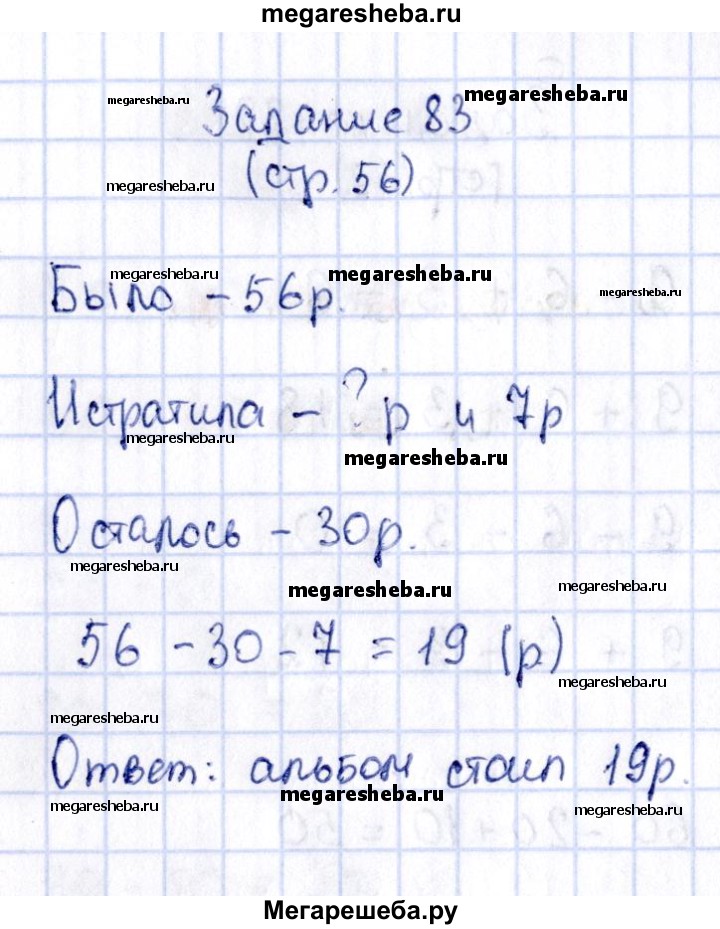 megaresheba.ru
megaresheba.ru Задание 83 megaresheba.ru
megaresheba.ru (стр. 56)
megaresheba.ru megaresheba.ru megaresheba.ru
Было - 56р.
Истратила - ? р и 7р
megaresheba.ru megaresheba.ru
Осталось - 30р.
megaresheba.ru megaresheba.ru megaresheba.ru
56 - 30 - 7 = 19 (р)
megaresheba.ru
megaresheba.ru
Ответ: альбом стоил 19р.
megaresheba.ru megaresheba.ru megaresheba.ru
Мегарешеба.ру